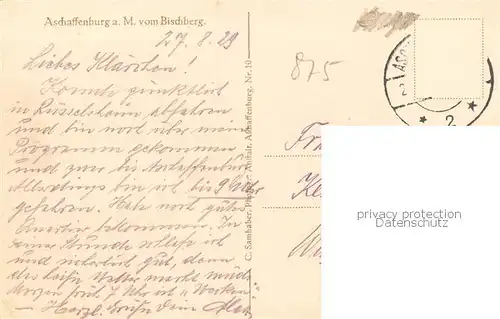 Aschaffenburg a. M. vom Bischberg.
27. 8. 29
Liebes Klärchen!
Konnte pünktlich
in Rüsselsheim abfahren
und bin noch über mein
Programm gekommen
und zwar bis Aschaffenburg
Allerdings bin ich bis 9 Uhr
gefahren. Habe noch gutes
Quartier bekommen. In
einer Stunde schlafe ich
und sicherlich gut, denn
das heiße Wetter macht müde
Morgen früh 7 Uhr ist "Wecken"
— Herzl. Grüße Dein
C. Samhaber, Anstalt, Aschaffenburg. Nr. 10
875
2
privacy protection
Datenschutz